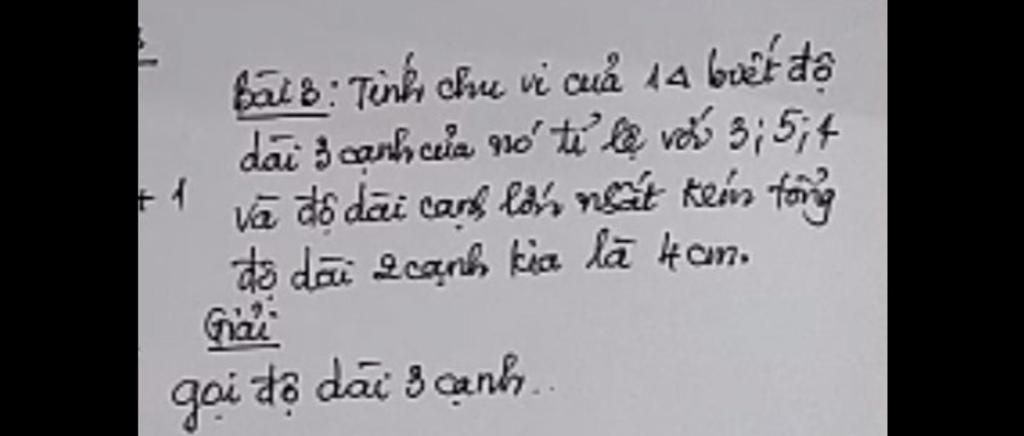 Bài 3: Tính chu vi của 1Δ biết độ
dài 3 cạnh của nó tỉ lệ với 3; 5; 7
+ 1
và độ dài cạnh lớn nhất kém tổng
độ dài 2 cạnh kia là 4cm.
Giải
gọi độ dài 3 cạnh..